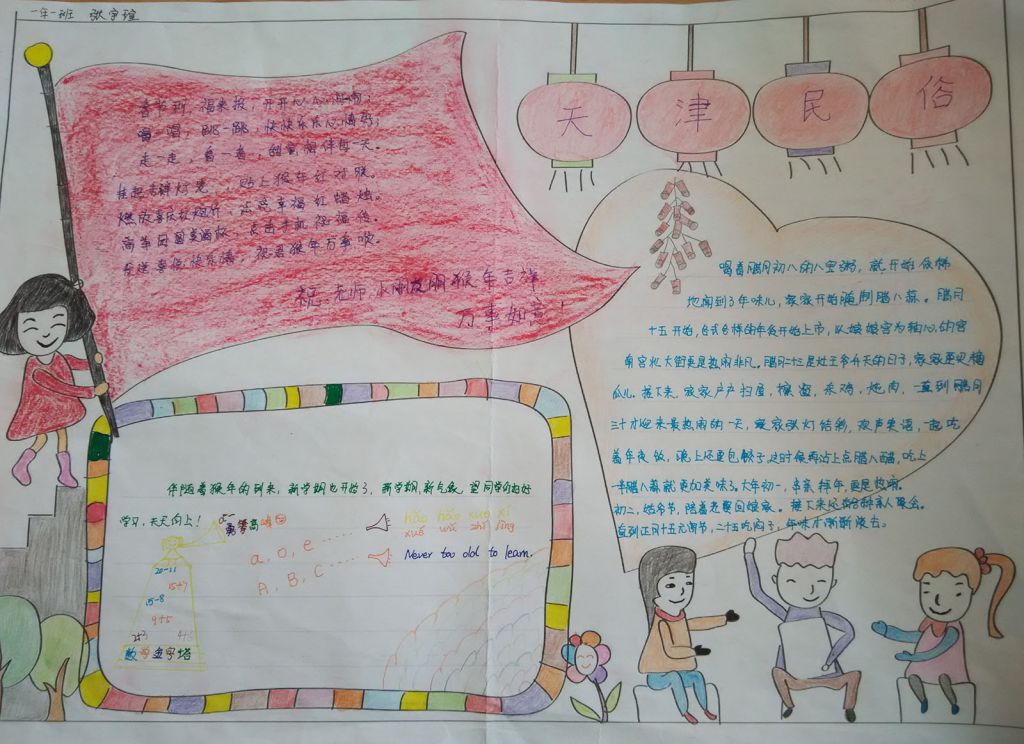 一年一班 张宇瑄
天津民俗
春节到,福来报,开开心心
唱一唱,跳一跳,快快乐乐心情好;
走一走,看一看,甜蜜相伴每一天。
挂起吉祥灯笼,贴上猴年好对联
燃放喜庆红烟竹,点亮幸福红蜡烛。
高举团圆美酒杯,点击手机祝福传。
祝老师 小朋友朋猴年吉祥
万事如意!
喝着腊月初八的八宝粥,就开始依稀
地闻到了年味儿,家家开始腌制腊八蒜。腊月
十五开始,各式各样的年货开始上市,以娘娘宫为轴心的宫
南宫北大街更是热闹非凡。腊月二十三是灶王爷升天的日子,家家要买糖
瓜儿。接下来,家家户户扫屋,擦窗,杀鸡,炖肉,一直到腊月
三十才迎来最热闹的一天,家家张灯结彩,欢声笑语,一起吃
着年夜饭,晚上还要包饺子这时候再沾上点腊八醋,吃上
一瓣腊八蒜就更加美味了。大年初一,串亲拜年,更是热闹。
初二,姑爷节,陪着老婆回娘家。接下来还会各种亲人聚会。
直到正月十五元宵节,二十五吃
伴随着猴年的到来,新学期也开始了,新学期,新气象,望同学们好好
学习,天天向上!
a、o、e ……
A、B、C ……
hǎo hǎo xué xí
xué wú zhǐ jìng
Never too old to learn.
20-11
15+7
15-8
9+5
数学金字塔